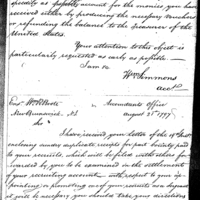 speedily as possible account for the monies, you have
received either by producing the necessary vouchers
or refunding the balance to the Treasurer of the
United States.
Your attention to this object is
particularly requested as early as possible —
I am &c
Wm Simmons
Acct
Accountants Office
New Brunswick NJ August 21st 1797
Sir
I have received your letter of the 19th Inst
enclosing sundry duplicate receipts for paid bounty paid
to your recruits, which will be filed with others for
warded by you to be examined in the settlement
of your recruiting account — with respect to your
in of your recruits as August
it will be necessary you should take your directions